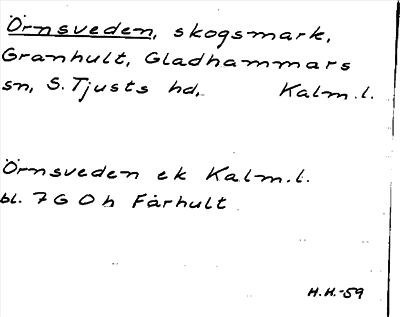 Örnsveden, skogsmark,
Granhult, Gladhammars
sn, S. Tjusts hd, Kalm.l.
Örnsveden ek Kalm.l.
bl. 7 G O h Fårhult
H.H.-59